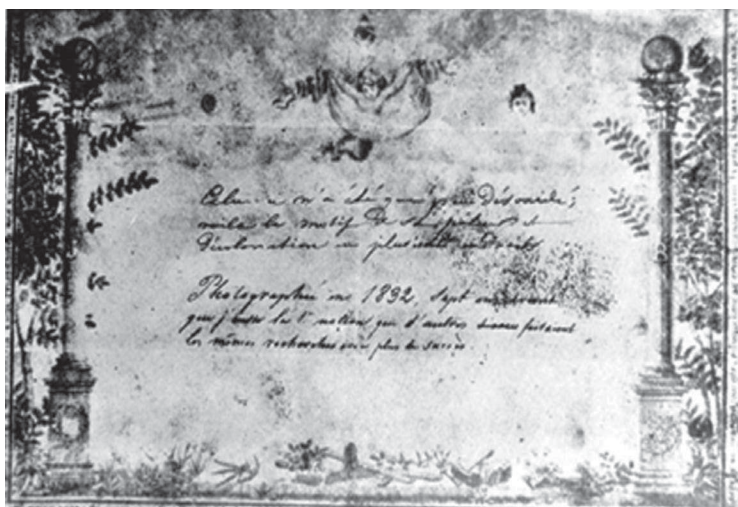 n'a été que peu
voilà le motif de et
décoloration en plusieurs endroits
Photographié en 1832, Sept ans avant
que j'eusse la 1re notion que d'autres faisaient
les mêmes recherches avec plus de succès.